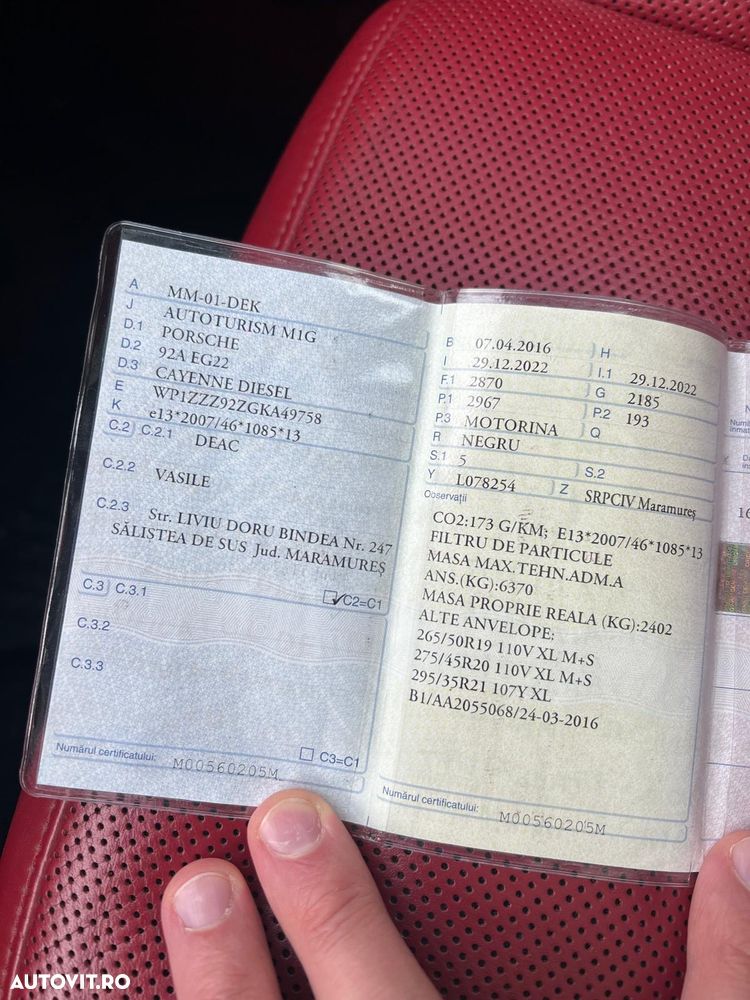 A MM-01-DEK
J AUTOTURISM M1G
D.1 PORSCHE
D.2 92A EG22
D.3 CAYENNE DIESEL
E WP1ZZZ92ZGKA49758
K e13*2007/46*1085*13
C.2 C.2.1 DEAC
C.2.2 VASILE
C.2.3 Str. LIVIU DORU BINDEA Nr. 247
SĂLISTEA DE SUS Jud. MARAMUREȘ
C2=C1
C.3 C.3.1
C.3.2
C.3.3
C3=C1
Numărul certificatului: M00560205M
B 07.04.2016 H
I 29.12.2022 I.1 29.12.2022
F.1 2870 G 2185
P.1 2967 P.2 193
P.3 MOTORINA Q
R NEGRU
S.1 5 S.2
Y L078254 Z SRPCIV Maramureș
Observații
CO2:173 G/KM; E13*2007/46*1085*13
FILTRU DE PARTICULE
MASA MAX.TEHN.ADM.A
ANS.(KG):6370
MASA PROPRIE REALA (KG):2402
ALTE ANVELOPE;
265/50R19 110V XL M+S
275/45R20 110V XL M+S
295/35R21 107Y XL
B1/AA2055068/24-03-2016
Numărul certificatului: M00560205M
16
AUTOVIT.RO